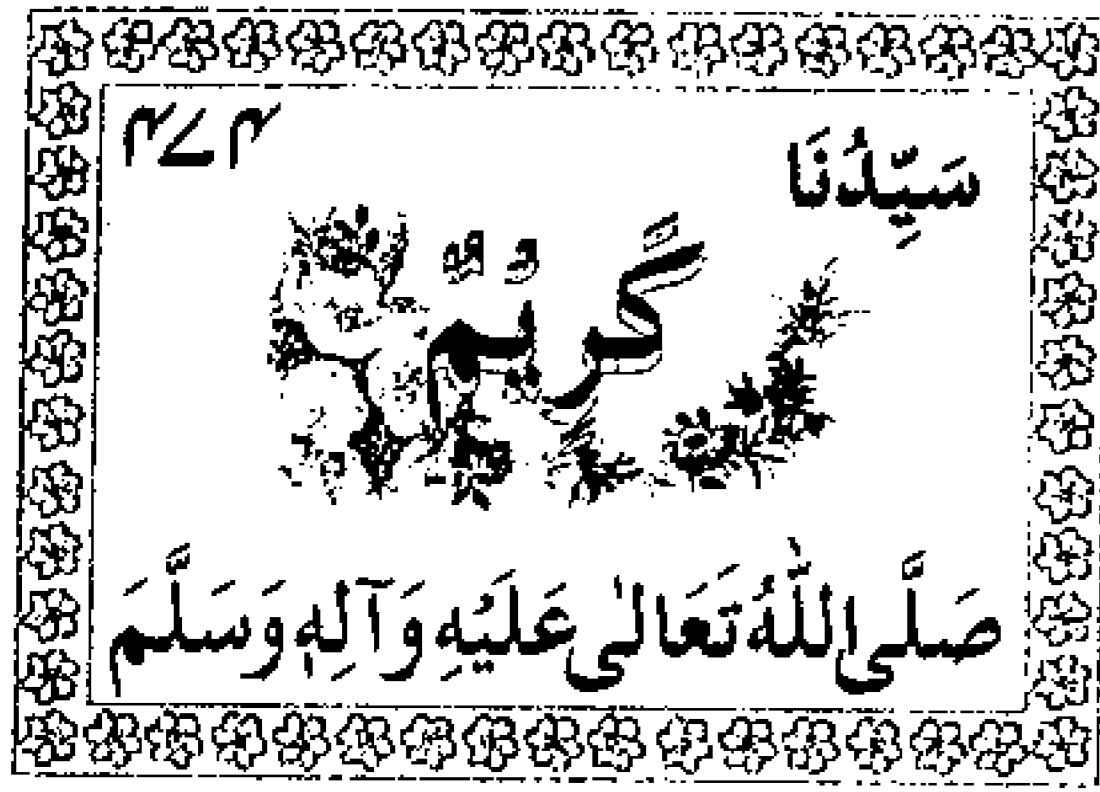 ۴۷۴
سَيِّدُنَا
كَرِيْمٌ
صَلَّى اللّٰهُ تَعَالٰى عَلَيْهِ وَآلِهٖ وَسَلَّمَ